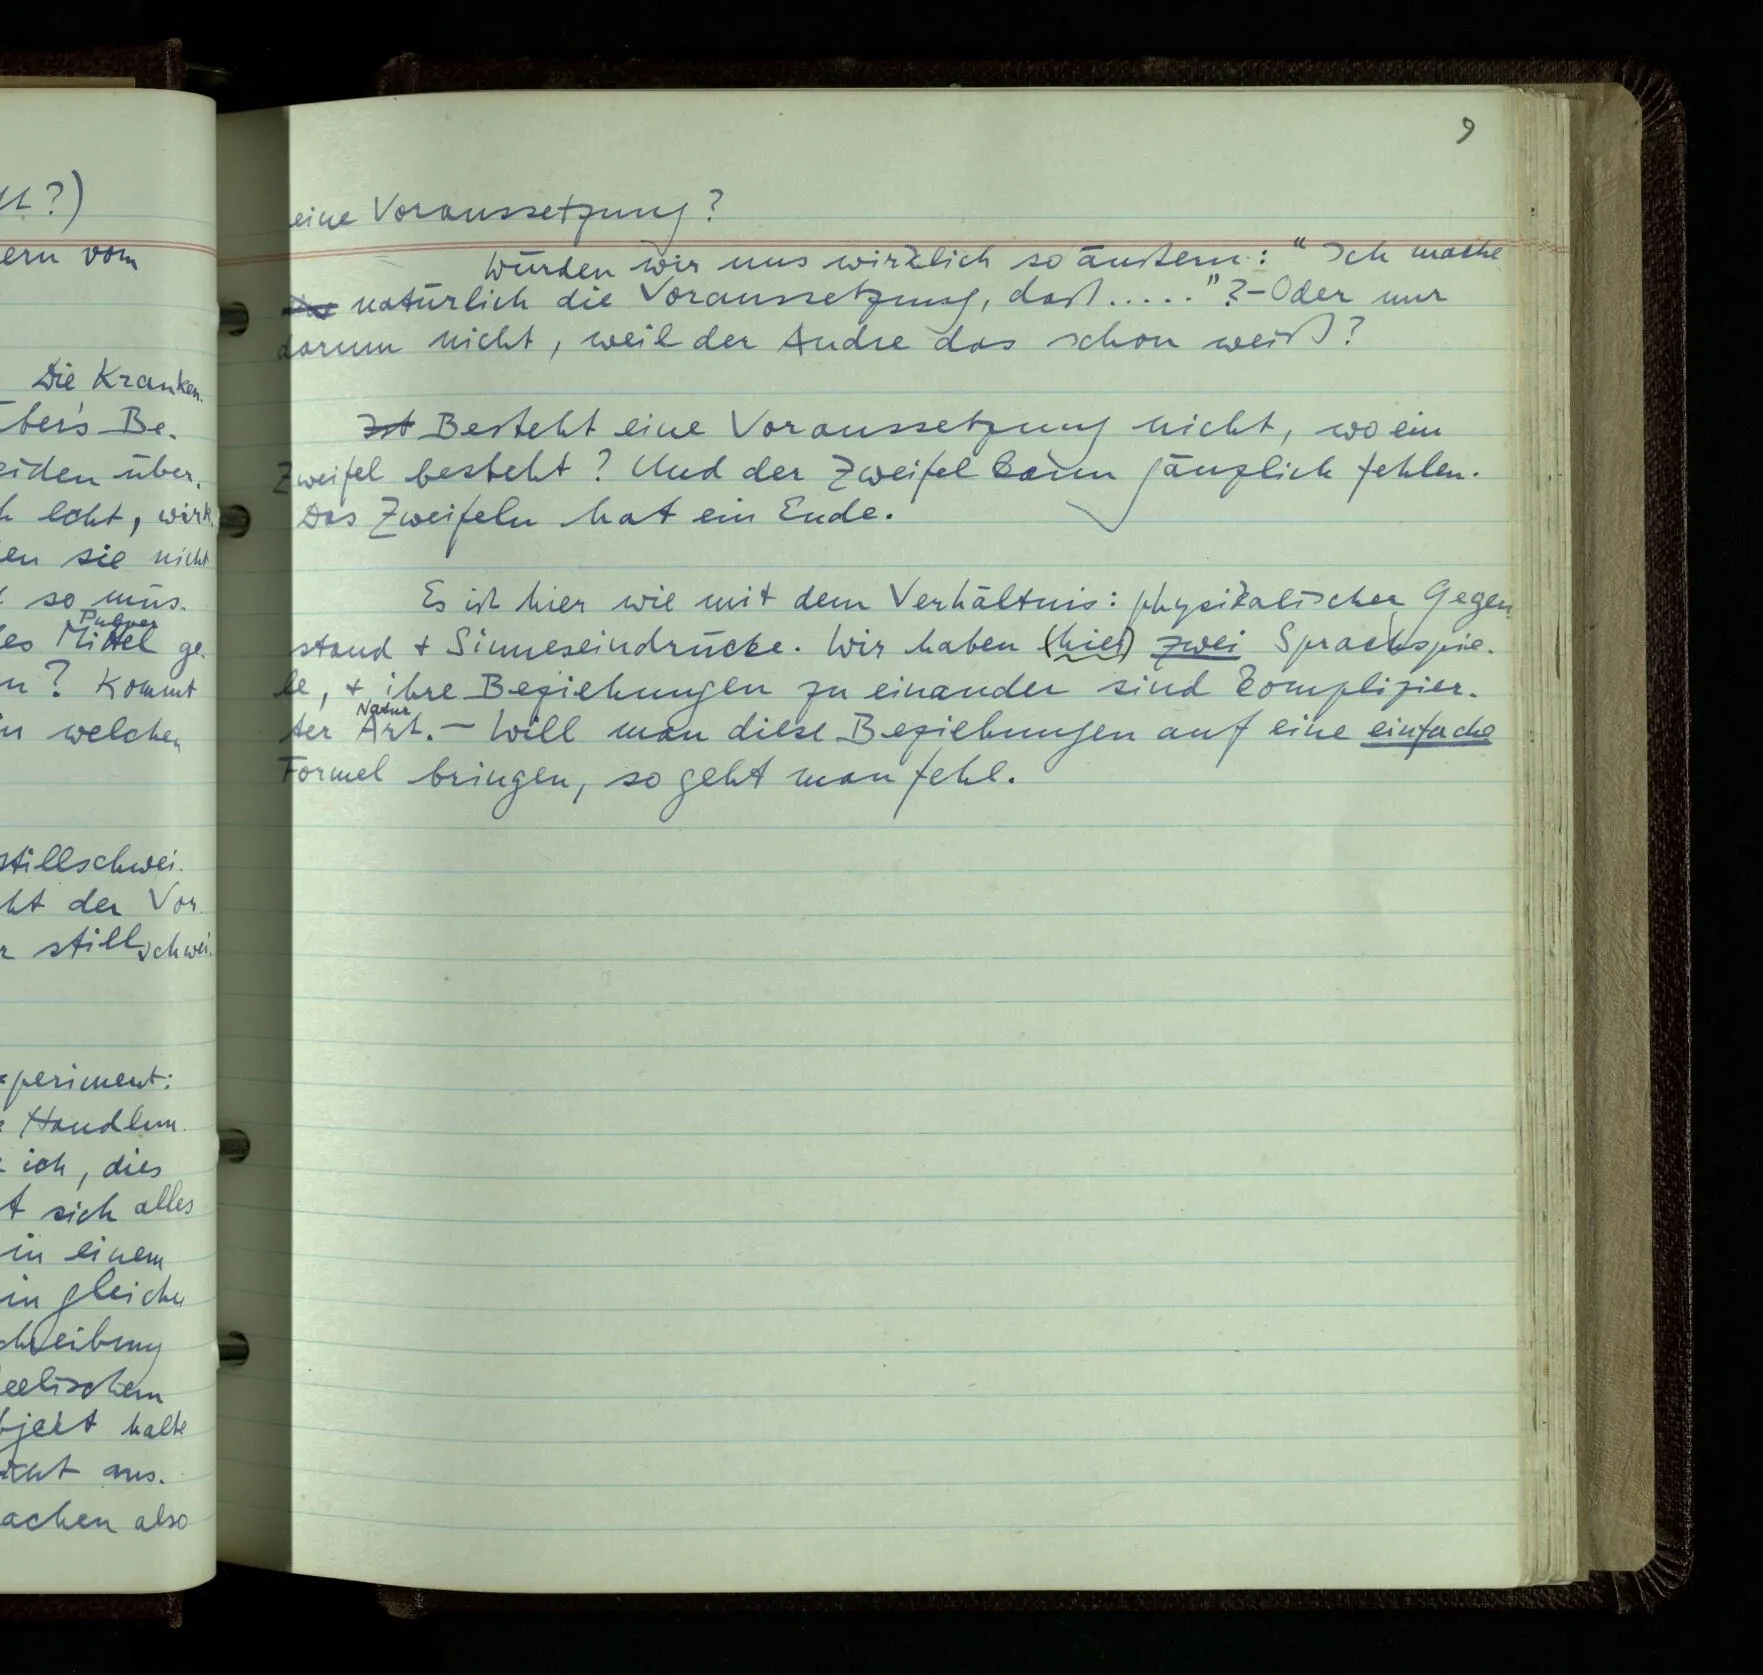 9
eine Voraussetzung?
Würden wir uns wirklich so äußern: "Ich mache
natürlich die Voraussetzung, daß....."?–Oder nur
darum nicht, weil der Andre das schon weiß?
Ist Besteht eine Voraussetzung nicht, wo ein
Zweifel besteht? Und der Zweifel kann gänzlich fehlen.
Das Zweifeln hat ein Ende.
Es ist hier wie mit dem Verhältnis: physikalischer Gegen
stand + Sinneseindrücke. Wir haben (hier) zwei Sprachspie-
le, + ihre Beziehungen zu einander sind komplizier-
Natur
ter Art. – Will man diese Beziehungen auf eine einfache
Formel bringen, so geht man fehl.
?)
ern vom
Die Kranken
ber's Be-
eiden über,
echt, wirk
en sie nicht
so müs-
Pulver
es Mittel ge-
n? Kommt
in welchen
stillschwei-
ht der Vor
stillschwei-
xperiment:
Handlun-
ich, dies
t sich alles
in einem
in gleichen
chreibung
eelischem
bjekt halte
icht aus.
achen also